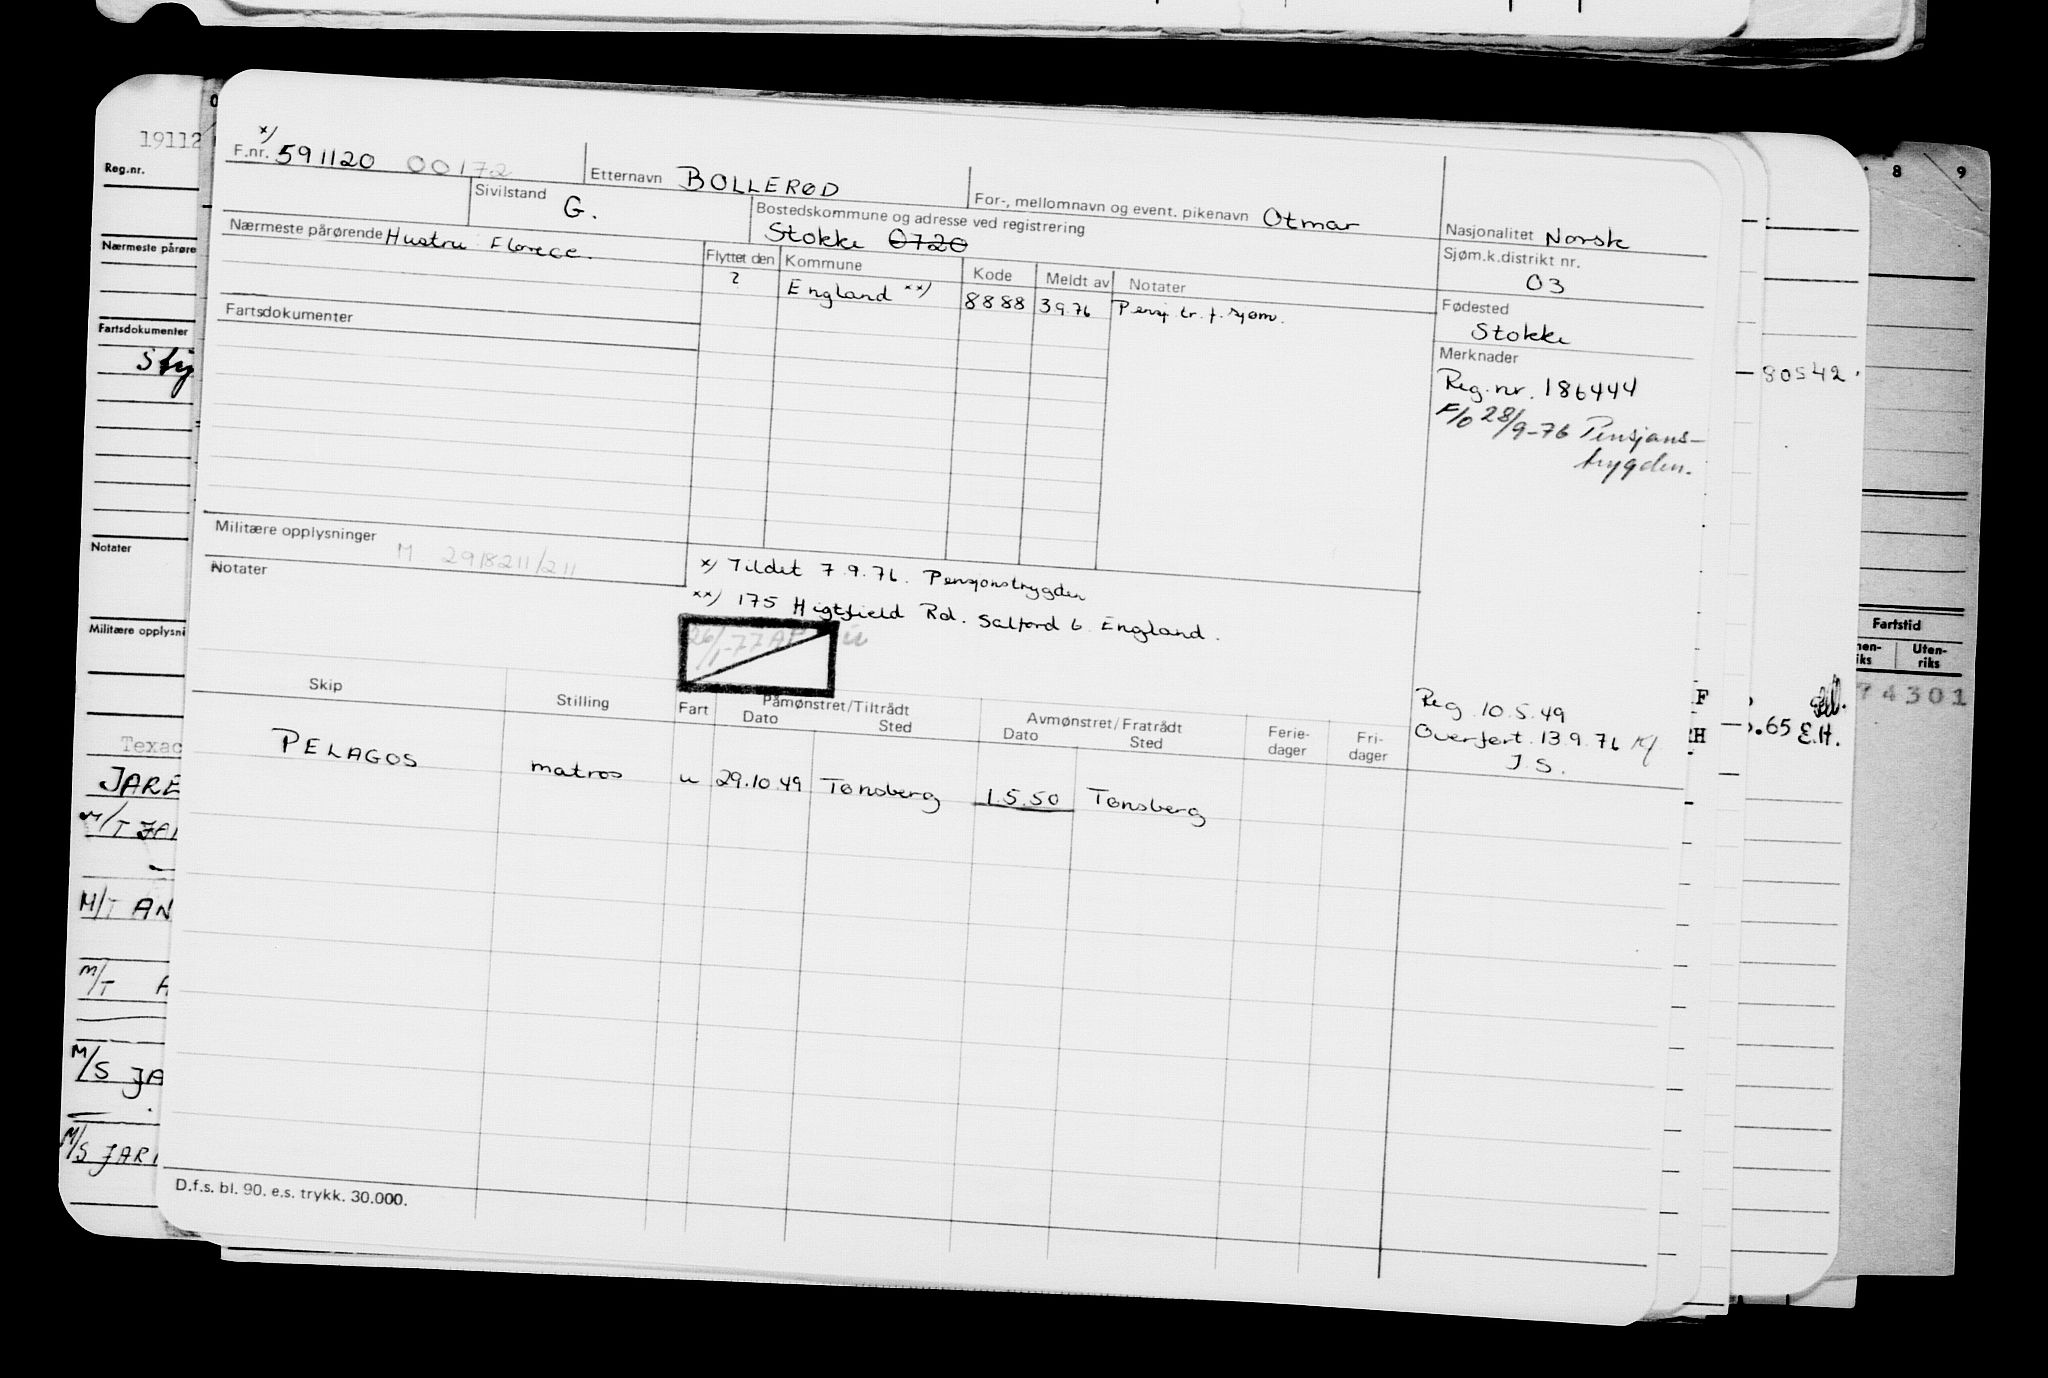 x)
F.nr. 591120 00172
Etternavn BOLLERØD
For-, mellomnavn og event. pikenavn Otmar
Nasjonalitet Norsk
Sivilstand G.
Bostedskommune og adresse ved registrering
Stokke 0720
Sjøm.k.distrikt nr.
03
Nærmeste pårørende Hustru Florece.
Flyttet den Kommune Kode Meldt av Notater
? England xx) 8888 3.9.76 Pensj tr. f. sjøm.
Fødested
Stokke
Fartsdokumenter
Merknader
Reg.nr. 186444
F/O 28/9-76 Pensjons-
trygden.
Militære opplysninger
M 2918211/211
Notater
x) Tildet 7.9.76. Pensjonstrygden
xx) 175 Higtfield Rd. Salford 6. England.
26/1-77
Reg. 10.5.49
Overført. 13.9.76
J.S.
Skip Stilling Fart Påmønstret/Tiltrådt Avmønstret/Fratrådt Ferie-
dager Fri-
dager
Dato Sted Dato Sted
PELAGOS matros u 29.10.49 Tønsberg 1.5.50 Tønsberg
D.f.s. bl. 90. e.s. trykk. 30.000.
19112
Reg.nr.
Nærmeste pårøre
Fartsdokumenter
Sty
Notater
Militære opplysni
Texac
JARE
M/T JAR
M/T AN
M/T A
M/S JA
M/S JARI
8 9
80542
Fartstid
nen-
iks
Uten-
riks
74301
F
RH
.65 E.H.